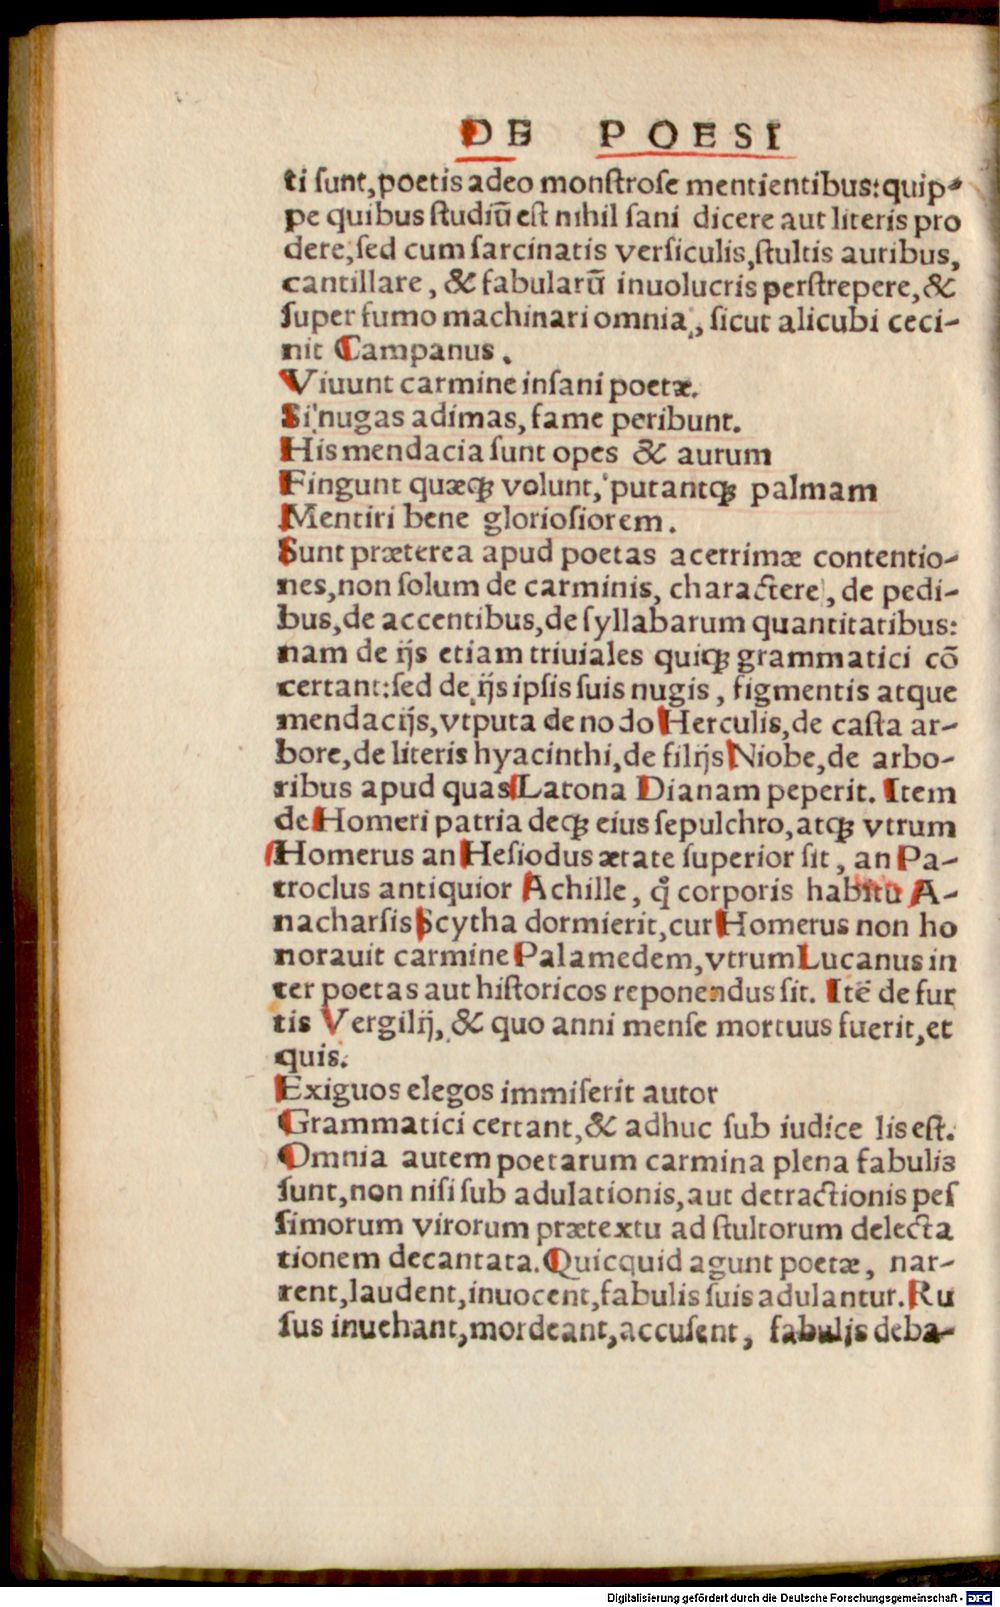 DE POESI
ti ſunt, poetis adeo monſtroſe mentientibus: quip-
pe quibus ſtudiũ eſt nihil ſani dicere aut literis pro
dere, ſed cum ſarcinatis verſiculis, ſtultis auribus,
cantillare, & fabularũ inuolucris perſtrepere, &
ſuper fumo machinari omnia, ſicut alicubi ceci-
nit Campanus.
Viuunt carmine inſani poetæ.
Si nugas adimas, fame peribunt.
His mendacia ſunt opes & aurum
Fingunt quæcꝗ volunt, putantꝗ palmam
Mentiri bene glorioſiorem.
Sunt præterea apud poetas acerrimæ contentio-
nes, non ſolum de carminis, charactere, de pedi-
bus, de accentibus, de ſyllabarum quantitatibus:
nam de ijs etiam triuiales quiꝗ grammatici cõ
certant: ſed de ijs ipſis ſuis nugis, figmentis atque
mendacijs, vtputa de nodo Herculis, de caſta ar-
bore, de literis hyacinthi, de filijs Niobe, de arbo-
ribus apud quas Latona Dianam peperit. Item
de Homeri patria deꝗ eius ſepulchro, atꝗ vtrum
Homerus an Heſiodus ætate ſuperior ſit, an Pa-
troclus antiquior Achille, q̊ corporis habitu A-
nacharſis Scytha dormierit, cur Homerus non ho
norauit carmine Palamedem, vtrum Lucanus in
ter poetas aut hiſtoricos reponendus ſit. Itẽ de fur
tis Vergilij, & quo anni menſe mortuus fuerit, et
quis.
Exiguos elegos immiſerit autor
Grammatici certant, & adhuc ſub iudice lis eſt.
Omnia autem poetarum carmina plena fabulis
ſunt, non niſi ſub adulationis, aut detractionis peſ
ſimorum virorum prætextu ad ſtultorum delecta
tionem decantata. Quicquid agunt poetæ, nar-
rent, laudent, inuocent, fabulis ſuis adulantur. Ru
ſus inuehant, mordeant, accuſent, fabulis deba-
Digitalisierung gefördert durch die Deutsche Forschungsgemeinschaft - DFG